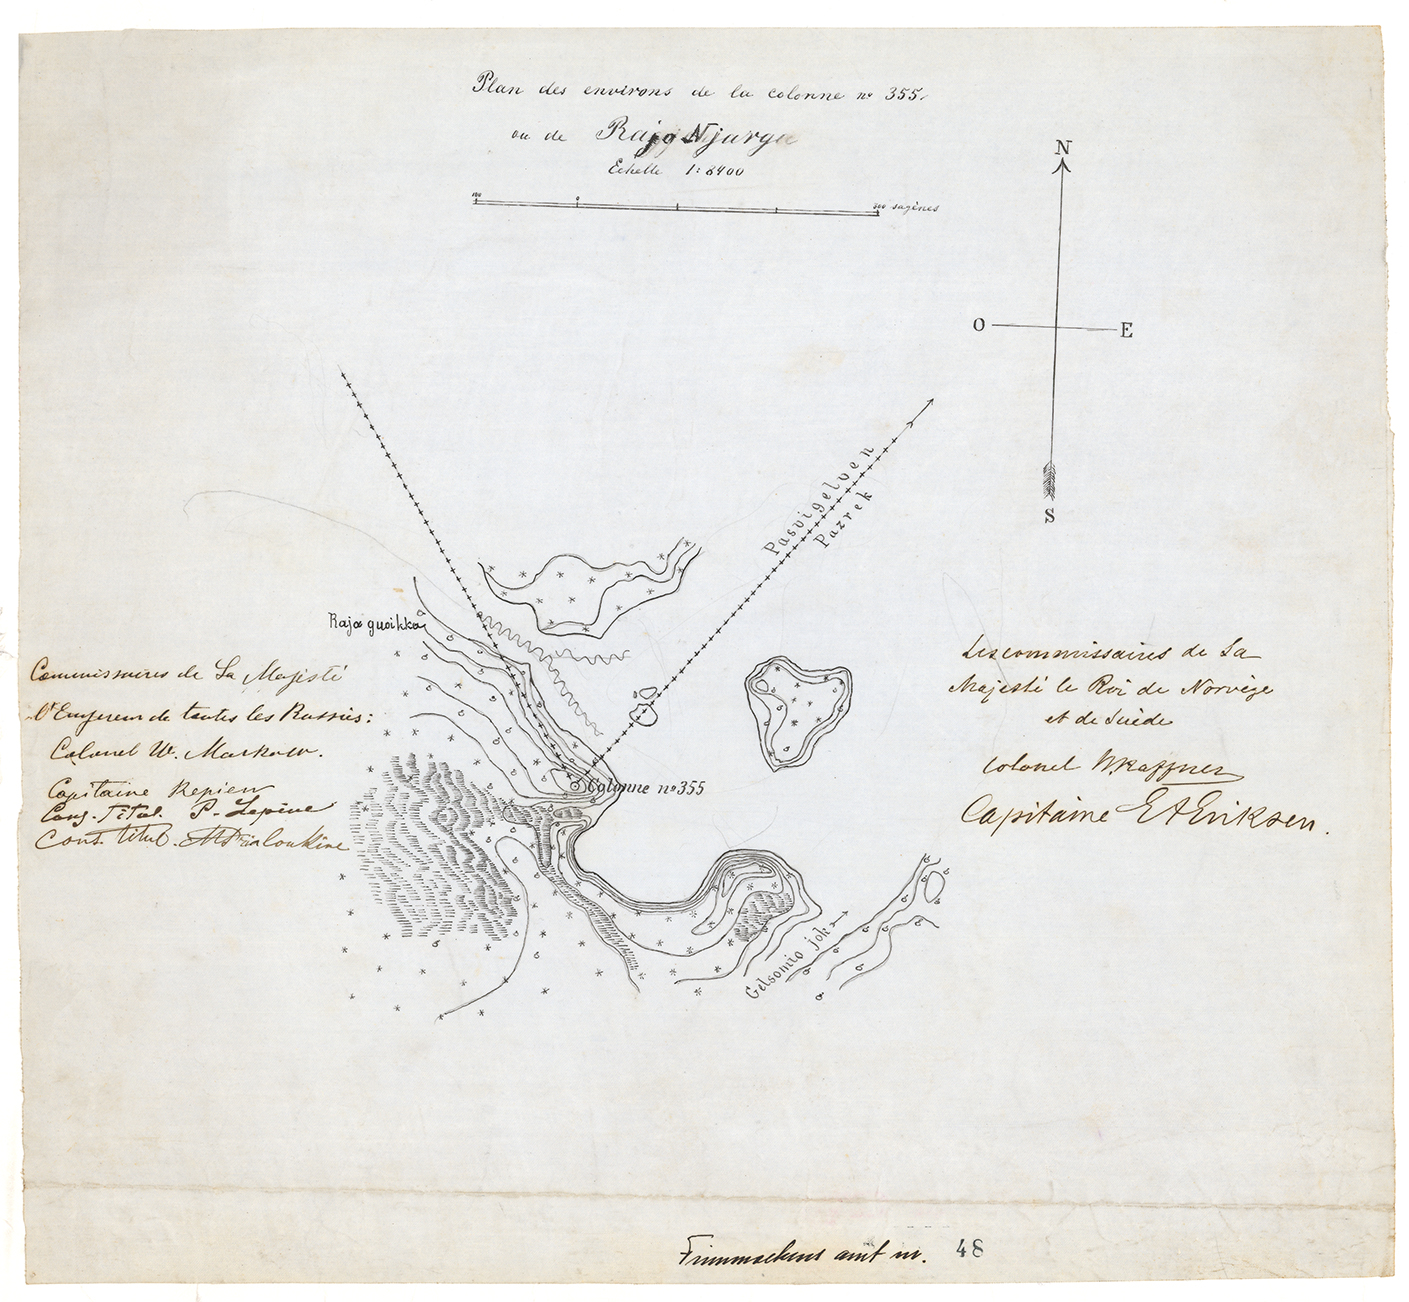 Plan des environs de la colonne nº 355.
ou de Raja Njarga
Echelle 1:8400
100 0 300 sagènes
N
O E
S
Pasvigelven
Pazrek
Raja guoikka
Colonne nº 355
Gelsomio jok
Commissaires de Sa Majesté
l'Empereur de toutes les Russies:
Colonel W. Markow.
Capitaine Repiew
Cons. Titul. P. Lepine
Cons. Titul.
Les commissaires de Sa
Majesté le Roi de Norvège
et de Suède
Colonel
Capitaine E A Eriksen.
Finmarkens amt nr. 48